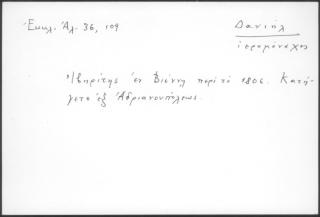 Ἐκκλ. Ἀλ. 36, 109
Δανιὴλ
ἱερομόναχος
Ἰβηρίτης ἐν Βιέννῃ περὶ τὸ 1806. Κατή-
γετο ἐξ Ἀδριανουπόλεως.